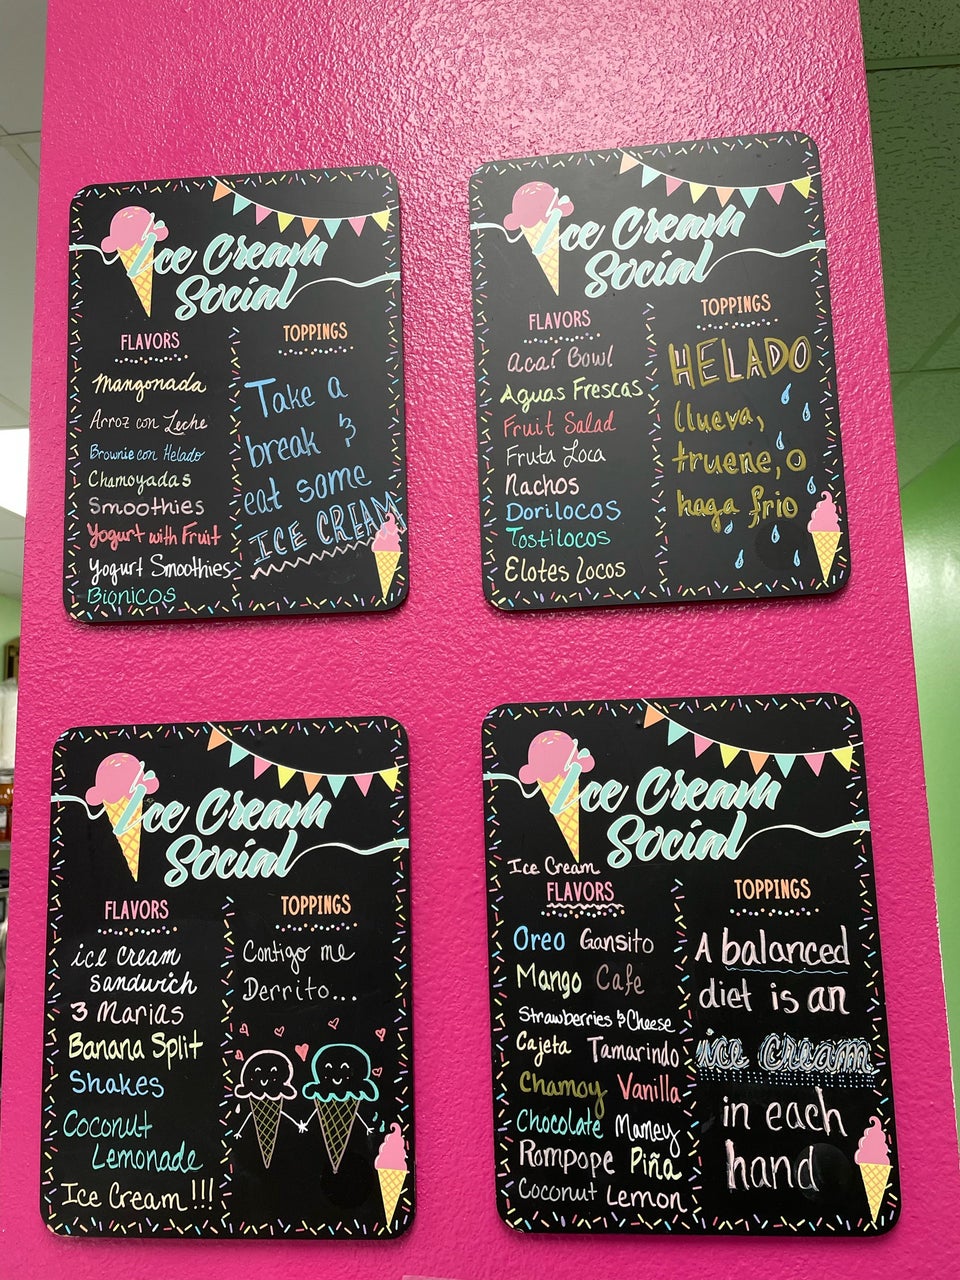 Ice Cream
Social
FLAVORS
Mangonada
Arroz con Leche
Brownie con Helado
Chamoyadas
Smoothies
Yogurt with Fruit
Yogurt Smoothies
Bionicos
TOPPINGS
Take a
break &
eat some
ICE CREAM
Ice Cream
Social
FLAVORS
Acaí Bowl
Aguas Frescas
Fruit Salad
Fruta Loca
Nachos
Dorilocos
Tostilocos
Elotes Locos
TOPPINGS
HELADO
llueva,
truene, o
haga frio
Ice Cream
Social
FLAVORS
ice cream
sandwich
3 Marias
Banana Split
Shakes
Coconut
Lemonade
Ice Cream !!!
TOPPINGS
Contigo me
Derrito...
Ice Cream
Social
Ice Cream
FLAVORS
Oreo Gansito
Mango Cafe
Strawberries & Cheese
Cajeta Tamarindo
Chamoy Vanilla
Chocolate Mamey
Rompope Piña
Coconut Lemon
TOPPINGS
A balanced
diet is an
ice cream
in each
hand